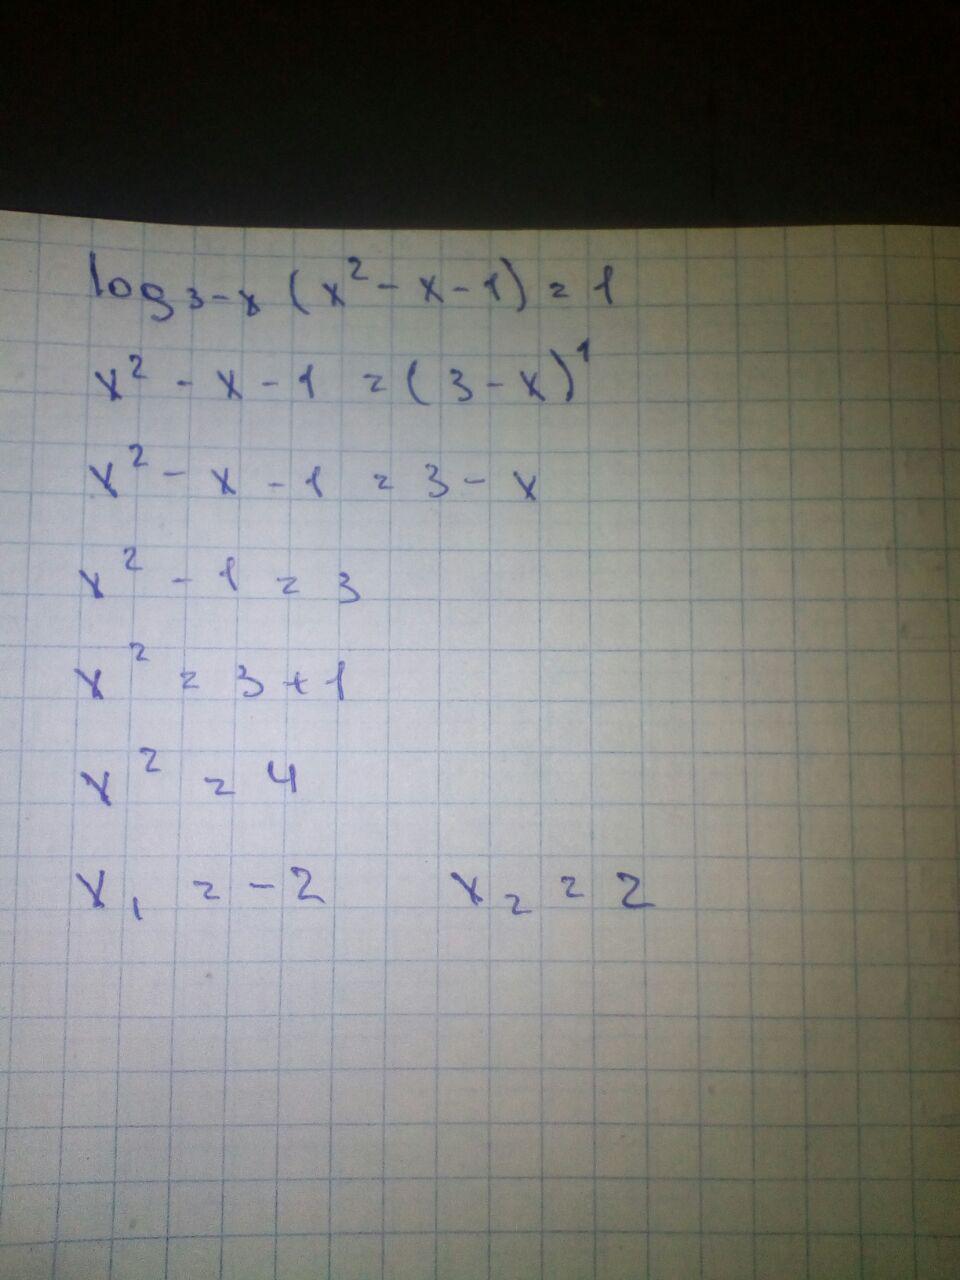 log₃₋ₓ (x² - x - 1) = 1
x² - x - 1 = (3 - x)¹
x² - x - 1 = 3 - x
x² - 1 = 3
x² = 3 + 1
x² = 4
x₁ = -2 x₂ = 2